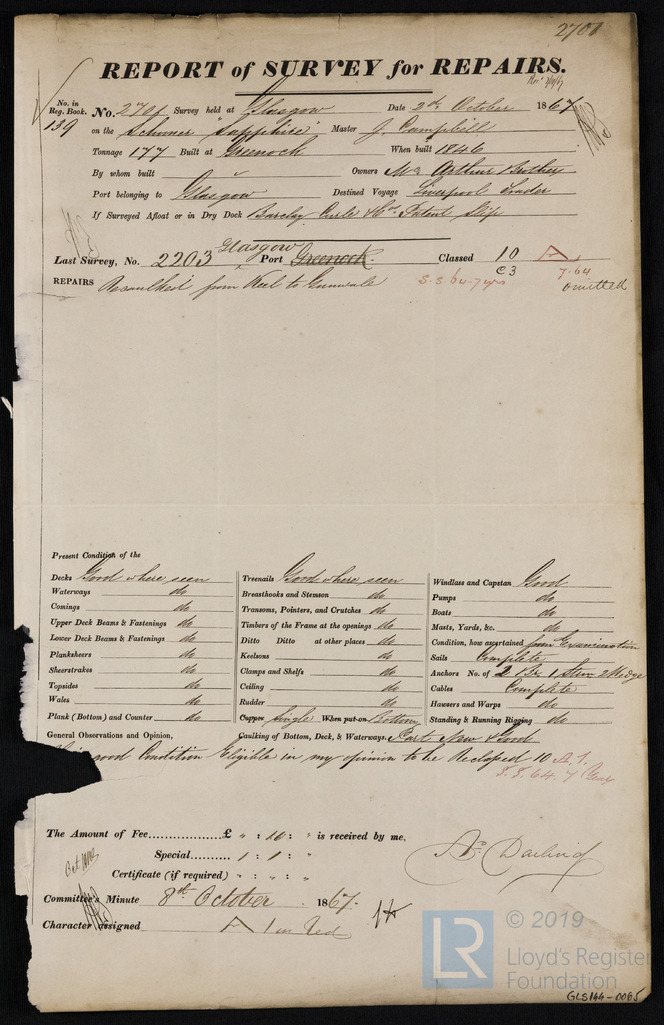 2701
REPORT of SURVEY for REPAIRS.
No. in Reg. Book. No. 2701 Survey held at Glasgow Date 2nd October 1867
139 on the Schuner "Sapphire" Master J. Campbell
Tonnage 177 Built at Greenock When built 1846
By whom built " Owners Mc Arthur Brothers
Port belonging to Glasgow Destined Voyage Liverpool Trader
If Surveyed Afloat or in Dry Dock Barclay Curle & Co. Patent Slip
Glasgow
Last Survey, No. 2203 Port Greenock. Classed 10 A
C3 7.64
S.S. 64-7 yrs omitted
REPAIRS Recaulked from Keel to Gunwale
Present Condition of the
Decks Good where seen Treenails Good where seen Windlass and Capstan Good
Waterways do Breasthooks and Stemson do Pumps do
Comings do Transoms, Pointers, and Crutches do Boats do
Upper Deck Beams & Fastenings do Timbers of the Frame at the openings do Masts, Yards, &c. do
Lower Deck Beams & Fastenings do Ditto Ditto at other places do Condition, how ascertained from Examination
Planksheers do Keelsons do Sails Complete
Sheerstrakes do Clamps and Shelfs do Anchors No. of 2 Br 1 Stre 2 Kedge
Topsides do Ceiling do Cables Complete
Wales do Rudder do Hawsers and Warps do
Plank (Bottom) and Counter do Copper Single When put on Bottom Standing & Running Rigging do
General Observations and Opinion, Caulking of Bottom, Deck, & Waterways. Part New & Good
good Condition Eligible in my opinion to be Reclassed 10 A.1.
S.S. 64. 7 Years
The Amount of Fee................£ " : 10 : " is received by me,
Special.......... 1 : 1 : "
Certificate (if required) " : " : "
Committee's Minute 8th October 1867.
Character assigned A 1 in Red
© 2019
LR
Lloyd's Register
Foundation
GLS166-0065